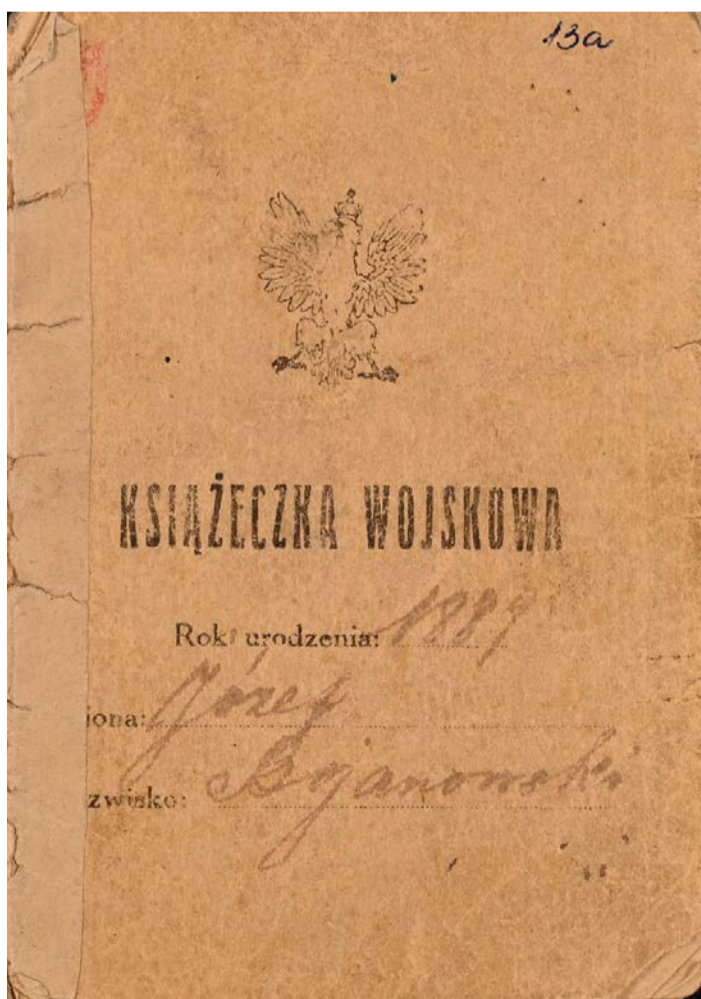 13a
KSIĄŻECZKA WOJSKOWA
Rok urodzenia: 1889
iona: Józef
zwisko: Bojanowski